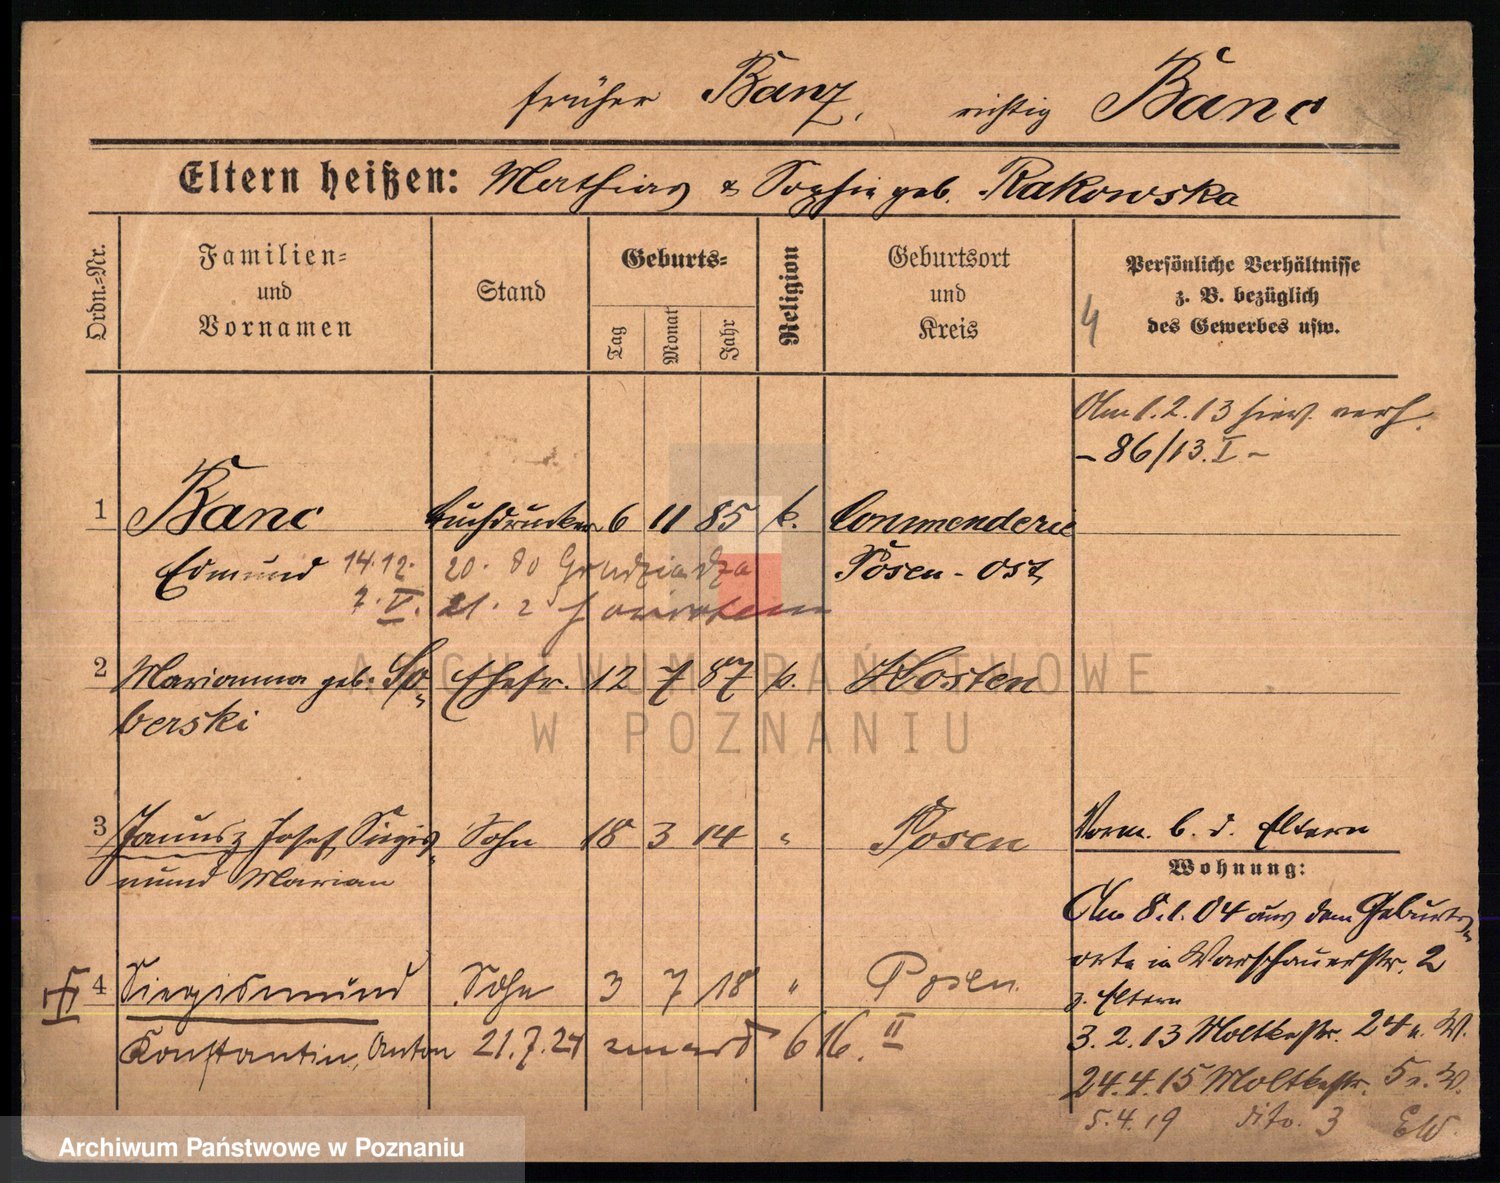 früher Banz, richtig Banc
Eltern heißen: Mathias & Sophie geb. Rakowska
Ordn.-Nr.
Familien-
und
Vornamen
Stand
Geburts-
Tag
Monat
Jahr
Religion
Geburtsort
und
Kreis
Persönliche Verhältnisse
z. B. bezüglich
des Gewerbes usw.
4
Am 1.2.13 hier verh.
- 86/13. I -
1 Banc Buchdrucker 6 11 85 k. Commenderie
Edmund 14.12. 20. do Grudziądza Posen-Ost
7. V. 21. z
2 Marianna geb. So- Ehefr. 12 7 87 k. Kosten
berski
3 Janusz Josef, Siegis- Sohn 18 3 14 " Posen
mund Marian
Vorm. b. d. Eltern
Wohnung:
Am 8.1.04 aus dem Geburts-
orte in Warschauerstr. 2
z. Eltern
4 Siegismund Sohn 3 7 18 " Posen
Konstantin, Anton 21.7.21 zmarł 616. II
3.2.13 Moltkestr. 24 e. W.
24.4.15 Moltkestr. 5 e. W.
5.4.19 dito. 3 EW.
ARCHIWUM PAŃSTWOWE
W POZNANIU
Archiwum Państwowe w Poznaniu